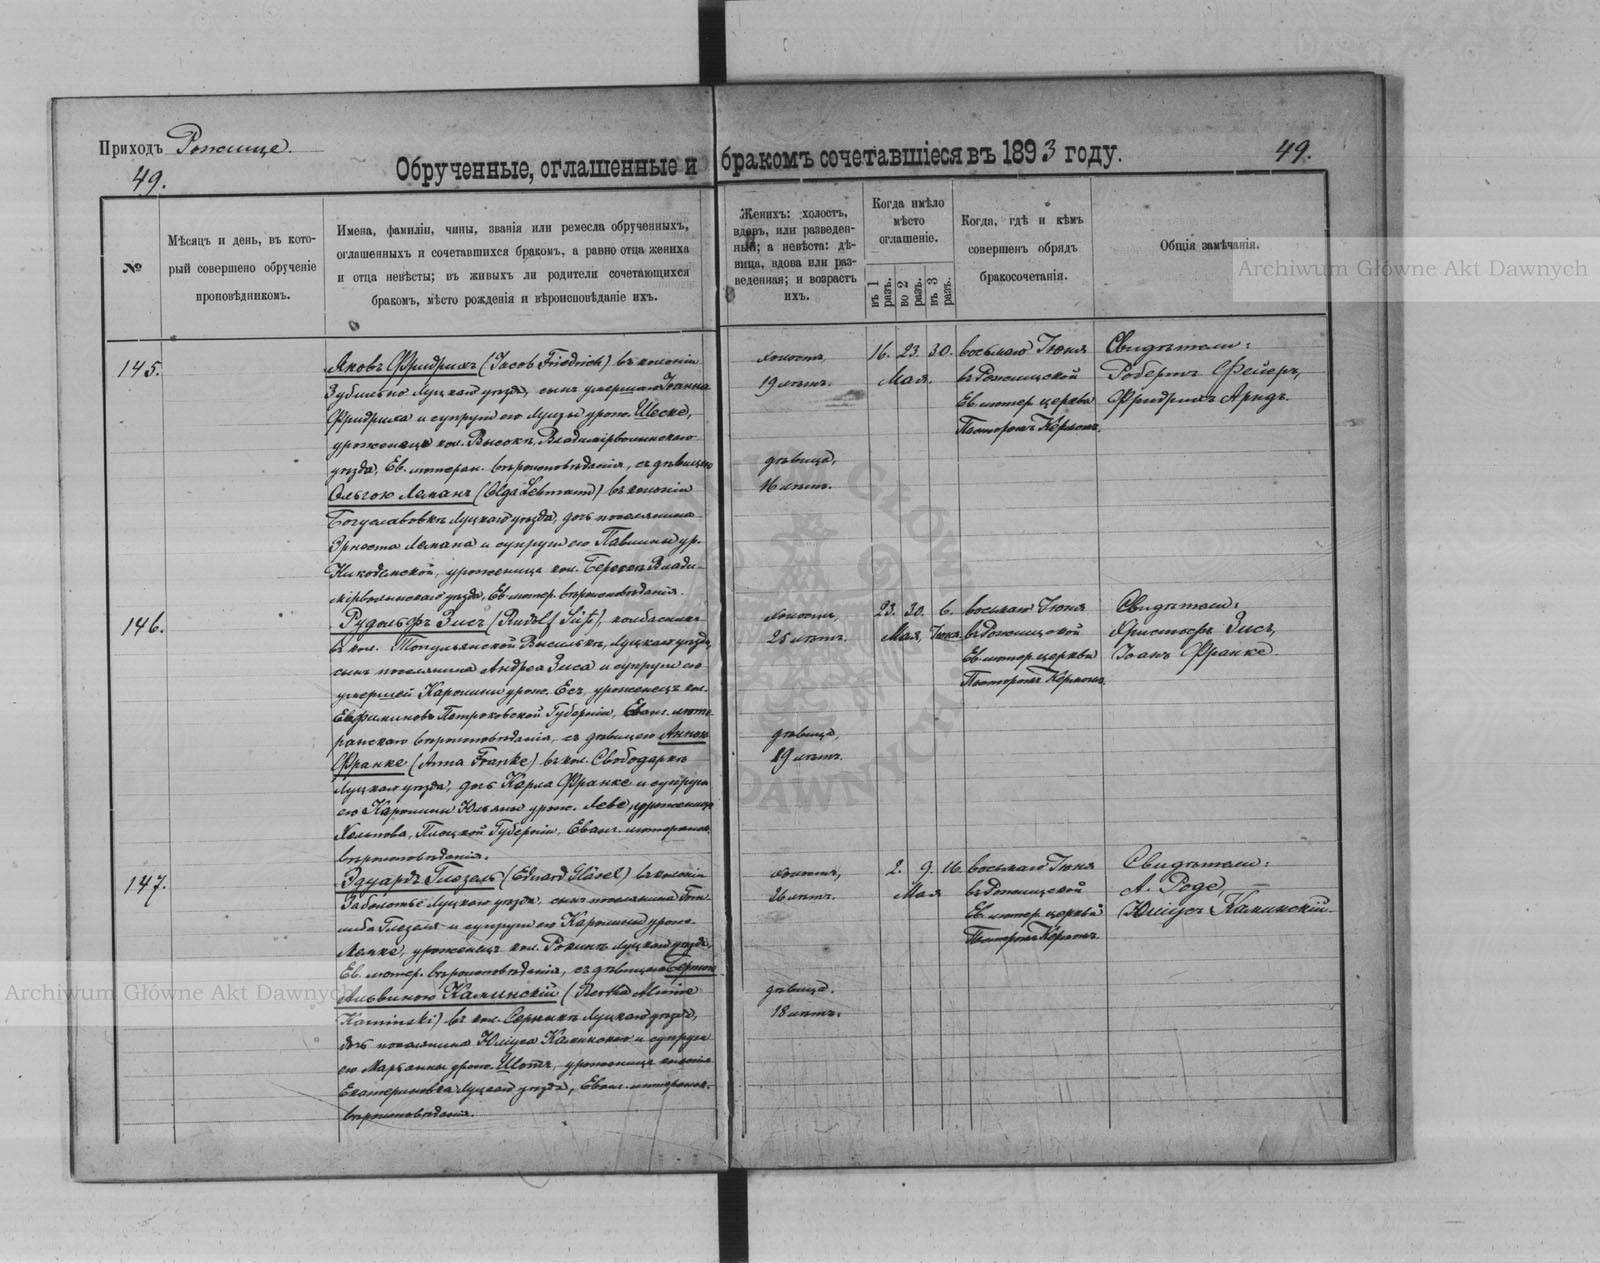 Приходъ Рожище.
49.
Обрученные, оглашенные и бракомъ сочетавшіеся въ 1893 году.
49.
№
Мѣсяцъ и день, въ кото-
рый совершено обрученіе
проповѣдникомъ.
Имена, фамиліи, чины, званія или ремесла обрученныхъ,
оглашенныхъ и сочетавшихся бракомъ, а равно отца жениха
и отца невѣсты; въ живыхъ ли родители сочетающихся
бракомъ, мѣсто рожденія и вѣроисповѣданіе ихъ.
Женихъ: холостъ,
вдовъ, или разведен-
ный; а невѣста: дѣ-
вица, вдова или раз-
веденная; и возрастъ
ихъ.
Когда имѣло
мѣсто
оглашеніе.
въ 1 разъ.
во 2 разъ.
въ 3 разъ.
Когда, гдѣ и кѣмъ
совершенъ обрядъ
бракосочетанія.
Общія замѣчанія.
145.
Яковъ Фридрихъ (Jacob Friedrich) въ колоніи
Зубильно Луцкаго уѣзда, сынъ умершаго Іоанна
Фридриха и супруги его Луизы урож. Шеске,
уроженецъ кол. Высокъ, Владимірволынскаго
уѣзда, Ев. лютеран. вѣроисповѣданія, съ дѣвицею
Ольгою Леманъ (Olga Lehmann) въ колоніи
Богуславовкѣ Луцкаго уѣзда, дочь поселянина
Эрнста Лемана и супруги его Павлины ур.
Никодемской, уроженица кол. Влади-
мірволынскаго уѣзда, Ев. лютер. вѣроисповѣданія.
холостъ,
19 лѣтъ.
дѣвица,
16 лѣтъ.
16. 23. 30.
Мая.
восьмаго Іюня
въ Рожищской
Ев. лютер. церкви
Пасторомъ Кёрномъ.
Свидѣтели:
Робертъ Фейеръ,
Фридрихъ Арндъ.
146.
Рудольфъ Зисъ (Rudolf Süß), колбасникъ
въ кол. Топульянской Высылкѣ, Луцкаго уѣзда,
сынъ поселянина Андрея Зиса и супруги его
умершей Каролины урож. Есъ, уроженецъ кол.
Ефиминовъ Петроковской Губерніи, Еванг. люте-
ранскаго вѣроисповѣданія, съ дѣвицею Анною
Франке (Anna Franke) въ кол. Свободаркѣ
Луцкаго уѣзда, дочь Карла Франке и супруги
его Каролины Юльяны урож. Леве, уроженица
Плоцкой Губерніи, Еванг. лютеранск.
вѣроисповѣданія.
холостъ,
25 лѣтъ.
дѣвица,
19 лѣтъ.
23. 30. 6.
Мая, Іюня
восьмаго Іюня
въ Рожищской
Ев. лютер. церкви
Пасторомъ Кёрномъ.
Свидѣтели:
Христофъ Зисъ,
Іоанъ Франке.
147.
Эдуардъ Глезель (Eduard Gläsel) въ колоніи
Заболотье Луцкаго уѣзда, сынъ поселянина Гот-
либа Глезеля и супруги его Каролины урож.
Лемке, уроженецъ кол. Луцкаго уѣзда,
Ев. лютер. вѣроисповѣданія, съ дѣвицею Бертою
Альвиною Каминскій (Bertha Alwine
Kaminski) въ кол. Сернкахъ Луцкаго уѣзда,
дочь поселянина Юлиуса Каминскаго и супруги
его Марьанны урож. Шоттъ, уроженица колоніи
Екатериновка Луцкаго уѣзда, Еванг. лютеранск.
вѣроисповѣданія.
холостъ,
26 лѣтъ.
дѣвица.
18 лѣтъ.
2. 9. 16.
Мая
восьмаго Іюня
въ Рожищской
Ев. лютер. церкви
Пасторомъ Кёрномъ.
Свидѣтели:
А. Роде,
Юліусъ Каминскій.
Archiwum Główne Akt Dawnych
Archiwum Główne Akt Dawnych